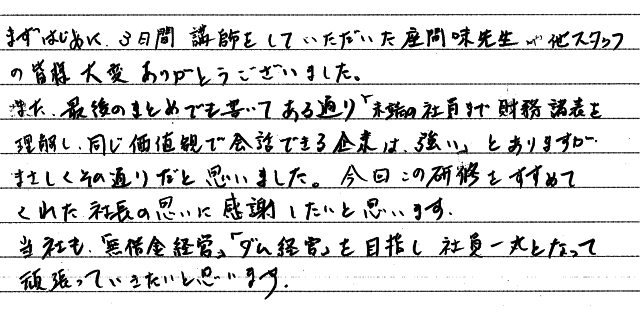 まずはじめに、3日間 講師をしていただいた座間味先生や他スタッフ
の皆様 大変ありがとうございました。
また、最後のまとめでも書いてある通り「末端の社員まで財務諸表を
理解し、同じ価値観で会話できる企業は、強い」とありますが
まさしくその通りだと思いました。今回この研修をすすめて
くれた社長の思いに感謝したいと思います。
当社も、「無借金経営」「ダム経営」を目指し社員一丸となって
頑張っていきたいと思います。